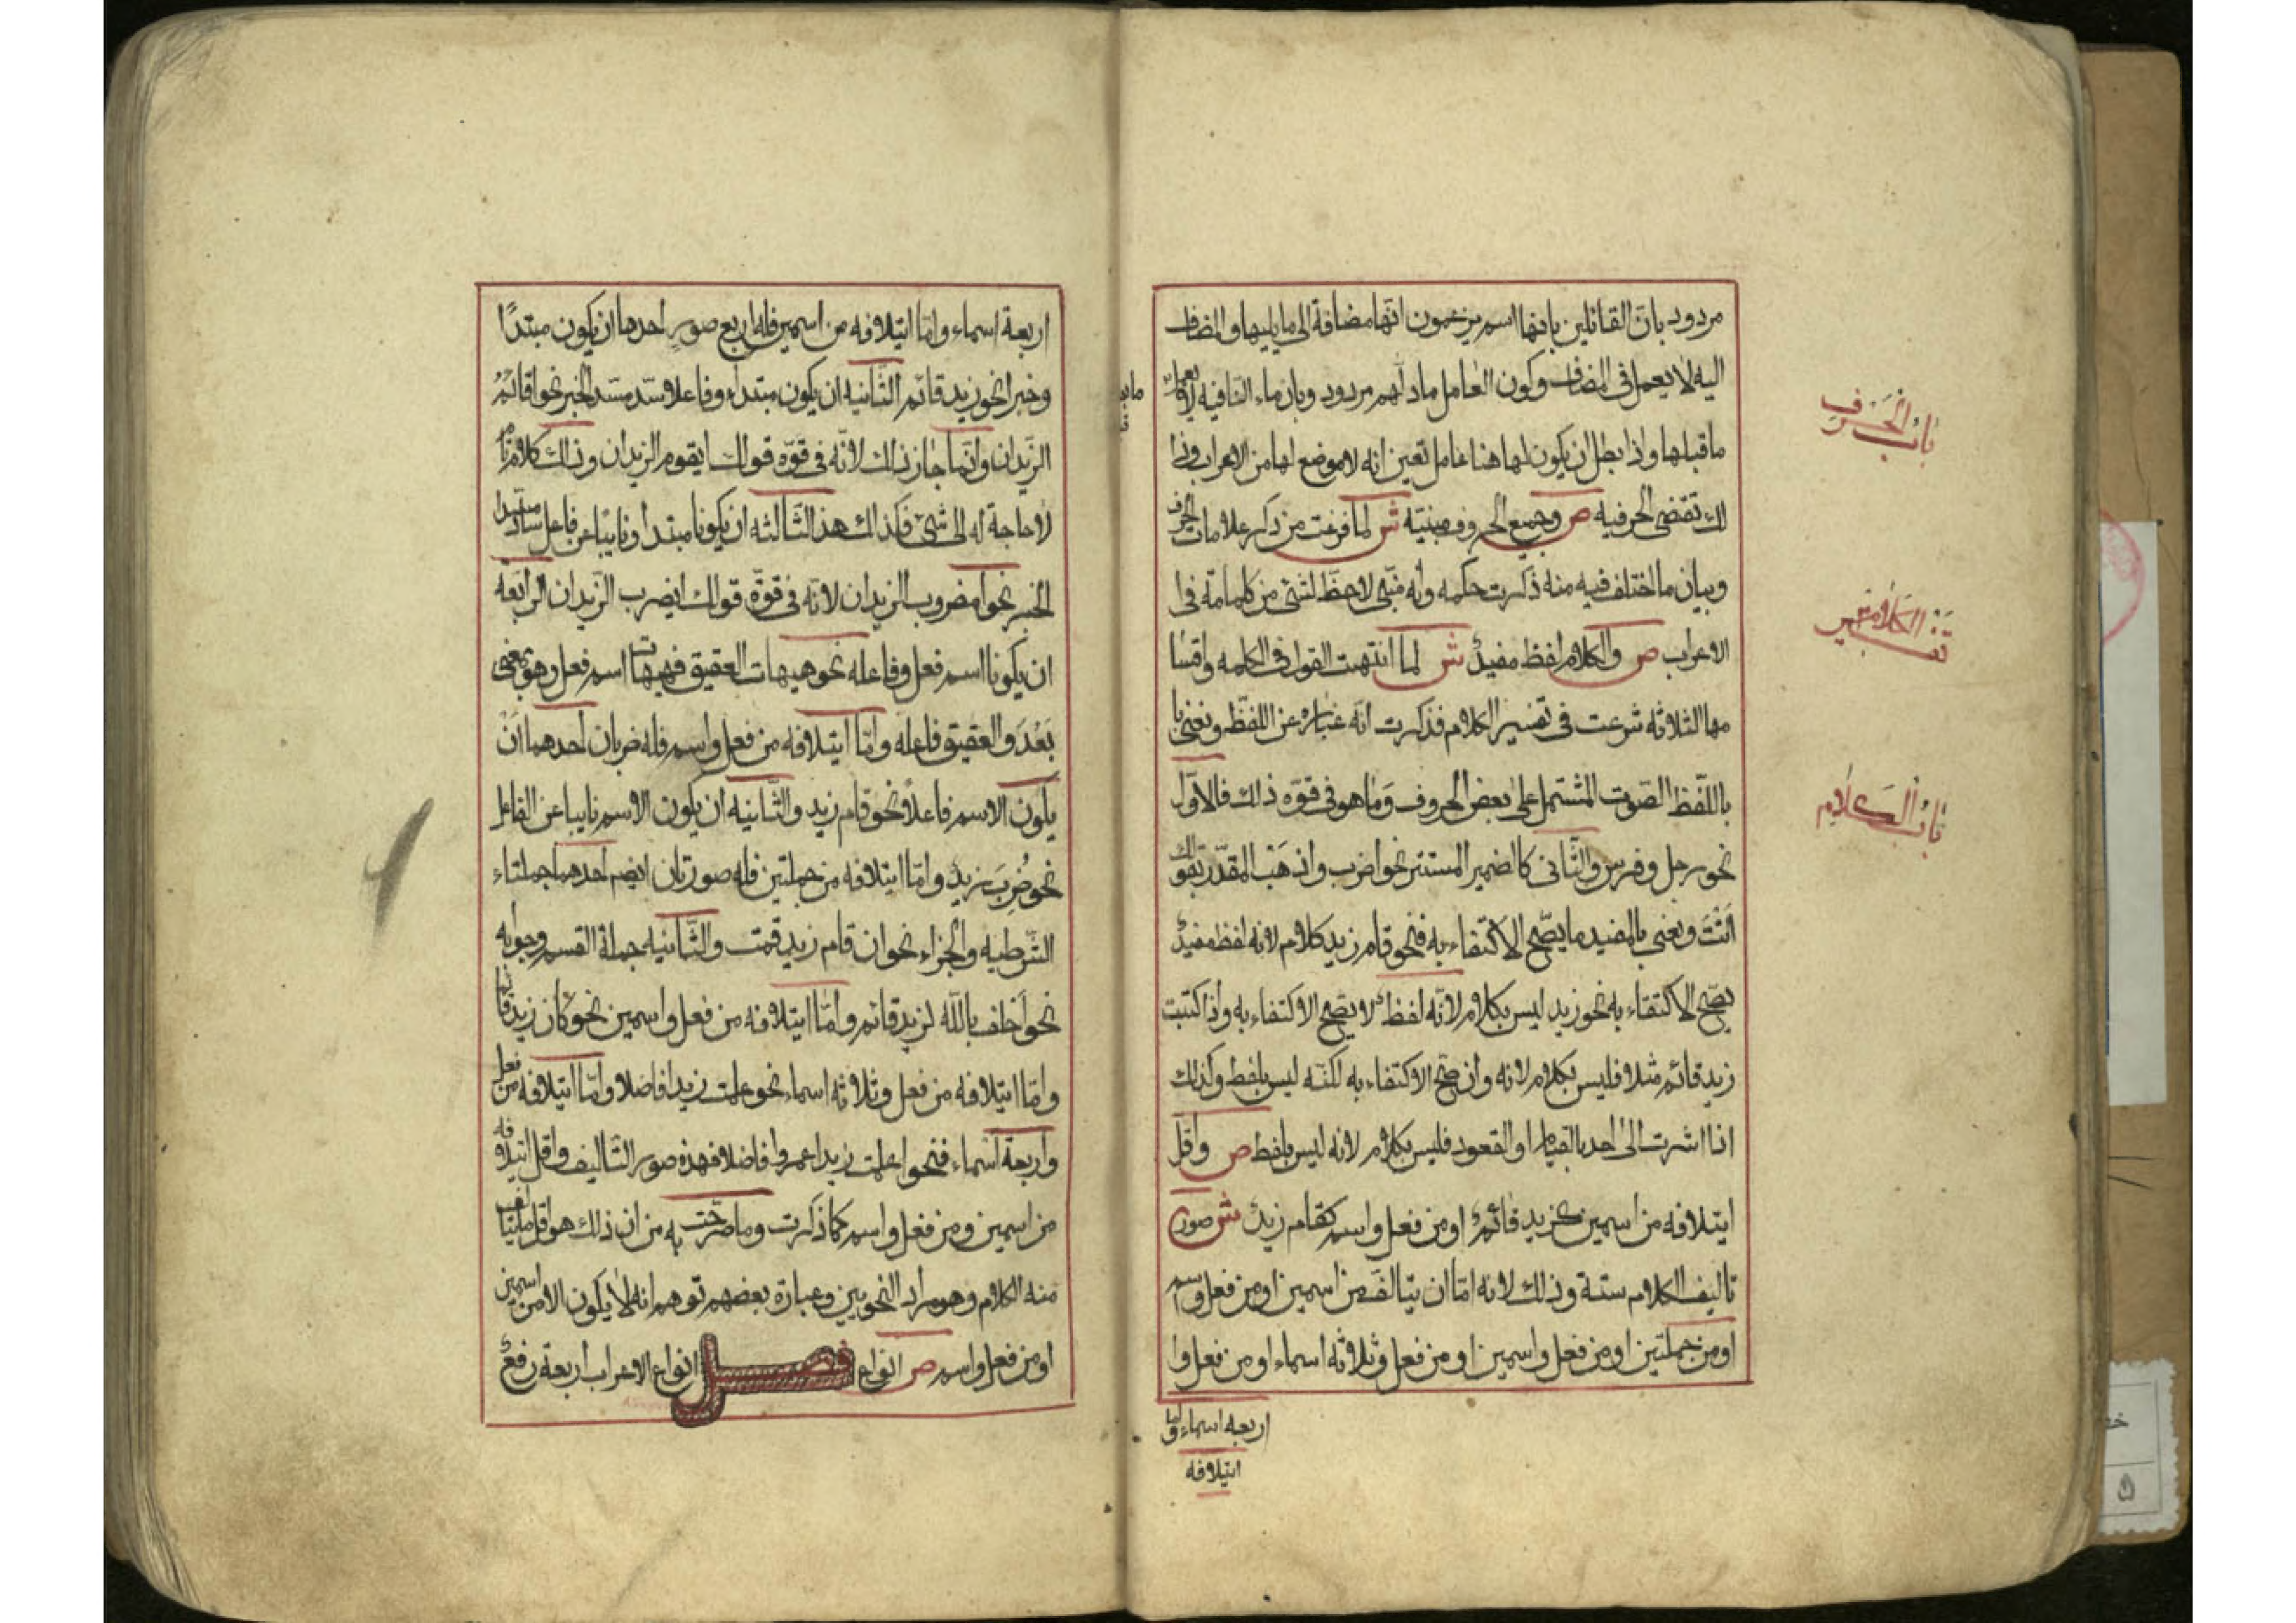 مردود بان القائلين بانها اسم يزعمون انها مضافة الى ما يليها والمضاف
اليه لا يعمل فى المضاف وكون العامل مادلهم مردود وبان ماء النافيه لا يعمل
ما قبلها واذا بطل ان يكون لها هنا عامل تعين انه لا موضع لها من الاعراب وذا
لك تقتضى الحرفيه ص وجميع الحروف مبنيته ش لما فرغت من ذكر علامات الحرف
وبيان ما اختلف فيه منه ذكرت حكمه وانه مبنى لاحظ لشئ من كلماته فى
الاعراب ص والكلام لفظ مفيدٌ ش لما انتهت القول فى الكلمه واقسا
مها الثلاثه شرعت فى تفسير الكلام فذكرت انه عباره عن اللفظ ونعنى
باللّفظ الصّوت المشتمل على بعض الحروف وما هو فى قوّه ذلك فالاوّل
نحو رجل وفرس والثّانى كالضمير المستتر نحو اضرب واذهب المقدّر بقولك
انْتَ ونعنى بالمفيد ما يصّح الاكتفاء به فنحو قام زيد كلام لانه لفظ مفيدٌ
يصّح الاكتفاء به نحو زيد ليس بكلام لانّه لفظ لا يصّح الاكتفاء به واذا كتبت
زيد قائم مثلا فليس بكلام لانه وان صّح الاكتفاء به لكنّه ليس بلفط وكذلك
اذا اشرت الى احد بالقيام او القعود فليس بكلام لانه ليس بلفط ص واقل
ايتلافه من اسمين كزيد قائمٌ او من فعل واسم كقام زيدٌ ش صور
تاليف الكلام ستة وذلك لانه امّا ان يتالف من اسمين او من فعل واسم
او من جملتين او من فعل واسمين او من فعل وثلاثه اسماء او من فعل وا
اربعه اسماء واما
ايتلافه
باب الحَرف
تفسير الكلام
باب الكلام
اربعة اسماء وامّا ايتلافه من اسمين فله اربع صور احدها ان يكون مبتدًا
وخبرا نحو زيد قائم الثّانيه ان يكون مبتداء وفاعلا سدّ مسّد الخبر نحو اقائمٌ
الزيدان وانّما جاز ذلك لانّه فى قوّه قولك ايقوم الزيدان وذلك كلام تامٌ
لا حاجة له الى شئ فكذالك هذا الثّالثه ان يكونا مبتدأ ونايبًا عن فاعل سادّ مسّد
الخبر نحو امضروب الزيدان لانّه فى قوّة قولك ايضرب الزّيدان الرّابعه
ان يكونا اسم فعل وفاعله نحو هيهات العقيق فهيهات اسم فعل وهو بمعنى
بَعُدَ والعقيق فاعله وامّا ايتلافه من فعل واسم فله ضربان احدهما انْ
يكون الاسم فاعلاً نحو قام زيد والثّانيه ان يكون الاسم نايبا عن الفاعل
نحو ضُرِبَ زيدٌ وامّا ايتلافه من جملتين فله صورتان ايضم احدهما جملتاء
الشّرطيه والجزاء نحو ان قام زيد قمت والثّانيه جملة القسم وجوابه
نحو اَحلف باللّه لزيد قائم وامّا ايتلافه من فعل واسمين نحو كان زيد قائما
وامّا ايتلافه من فعل وثلاثه اسماء نحو علمت زيدا فاضلا وامّا ايتلافه من فعل
واربعة اسماء فنحو اعلمت زيدا عمروا فاضلا فهذه صور التّاليف واقل ايتلافه
من اسمين ومن فعل واسم كما ذكرت وما صرّحت به من ان ذلك هو اقل ما يتالف
منه الكلام وهو مراد النحويين وعبارة بعضهم توهم انه لا يكون الا من اسمين
او من فعل واسم ص انواع فصل انواع الاعراب اربعة رفعٌ